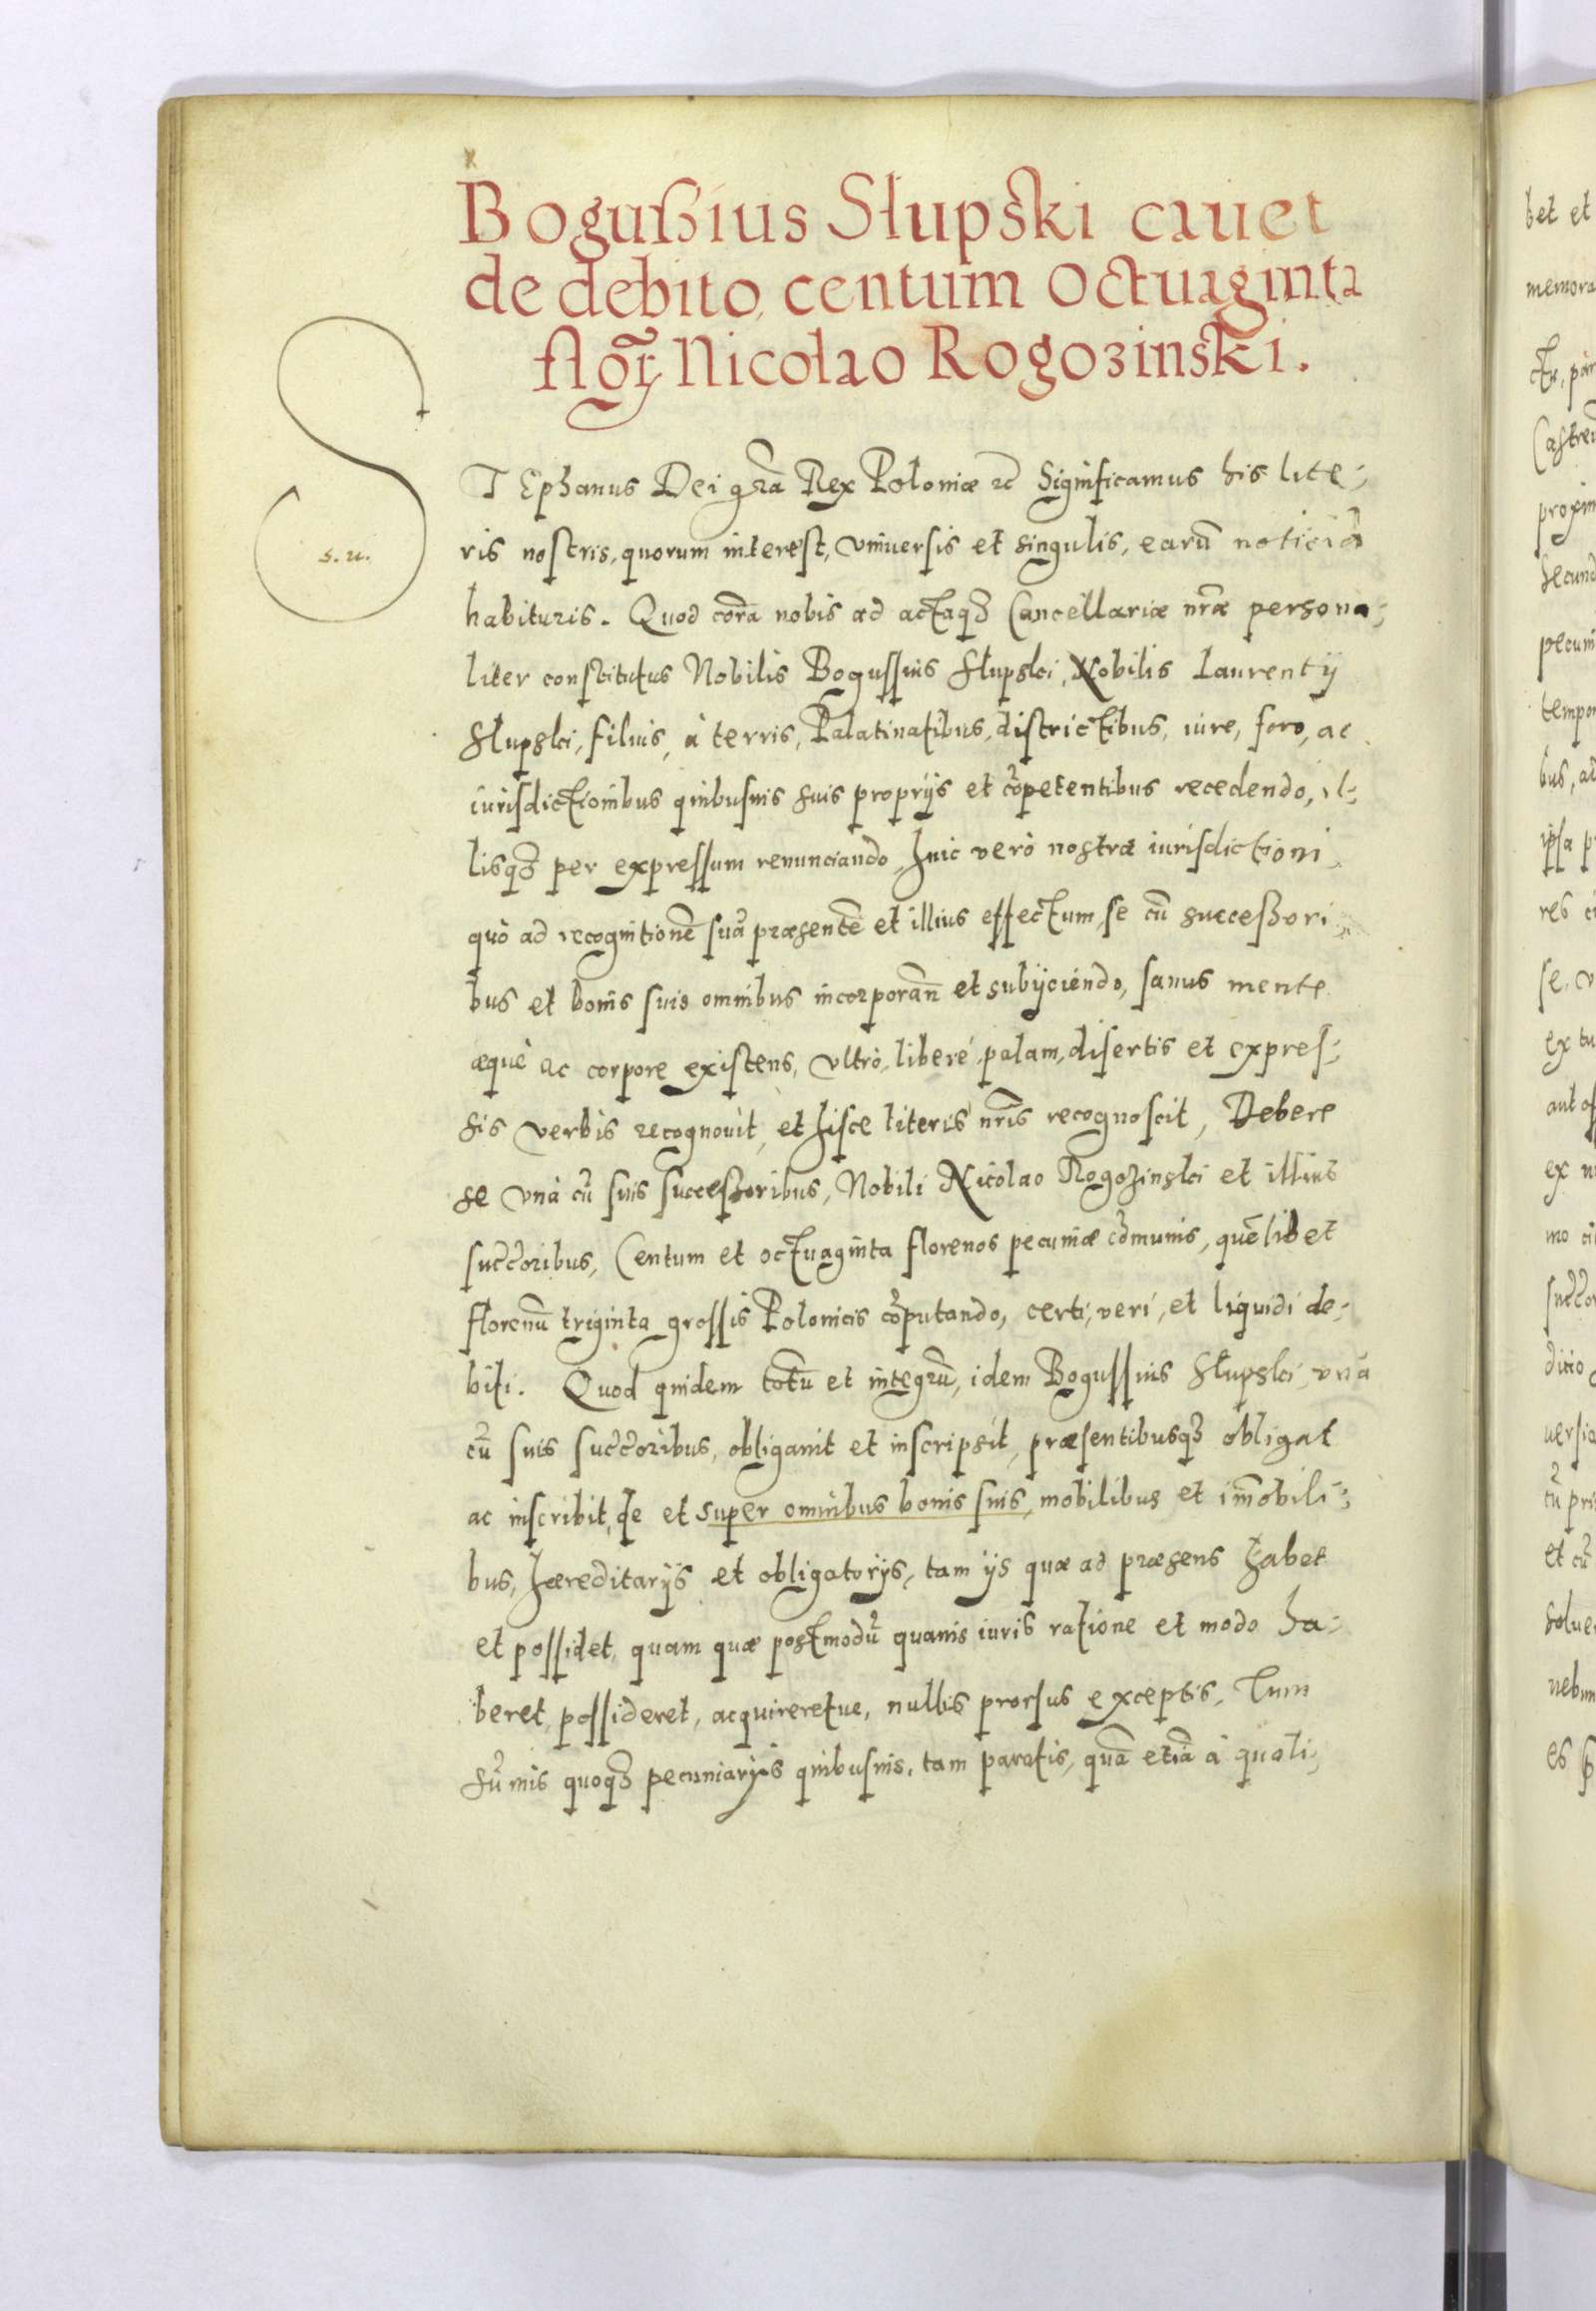 Bogußius Słupski cauet
de debito centum Octuaginta
flor Nicolao Rogozinski.
STEphanus Dei gr̃a Rex Poloniæ ꝛc̃ Significamus his lite:
ris nostris, quorum interest, vniuersis et singulis, earũ noticiã
s. u.
habituris. Quod corã nobis ad actaqꝫ Cancellariæ nr̃æ persona:
liter constitutus Nobilis Bogussius Słupski, Nobilis Laurentÿ
Słupski, filius, à terris, Palatinatibus, districtibus, iure, foro, ac
iurisdictionibus quibusuis suis proprÿs et cõpetentibus recedendo, il:
lisqꝫ per expressum renunciando, huic verò nostræ iurisdictioni
quò ad recognitionẽ suã præsentẽ et illius effectum, se cũ successori
bus et bonis suis omnibus incorporañ et subÿciendo, sanus mente
æquè ac corpore existens, vltrò, liberé, palam, disertis et expres:
sis verbis recognouit, et hisce literis nr̃is recognoscit, Debere
se vnà cũ suis successoribus, Nobili Nicolao Rogozinski et illius
succ̃oribus, Centum et octuaginta florenos pecuniæ cõmunis, quẽlibet
florenũ triginta grossis Polonicis cõputando, certi, veri, et liquidi de:
biti. Quod quidem totũ et integrũ, idem Bogussius Słupski, vnà
cũ suis succ̃oribus, obligauit et inscripsit, præsentibusqꝫ obligat
ac inscribit, de et super omnibus bonis suis, mobilibus et im̃obili:
bus, hæreditarÿs et obligatorÿs, tam ÿs quæ ad præsens habet
et possidet, quam quæ postmodũ quauis iuris ratione et modo ha:
beret, possideret, acquireretue, nullis prorsus exceptis, Tum
sum̃is quoqꝫ pecuniarÿs quibusuis, tam paratis, quã etiã à quoli:
bet et
memora
proxim
secund
pecuni
tempor
ipsa p
ex tu
ditio
et cũ
solue